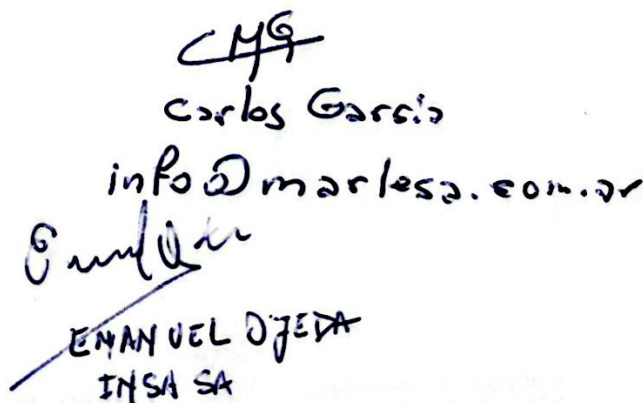 CMG
Carlos Garcia
info@marlesa.com.ar
EMANUEL OJEDA
INSA SA